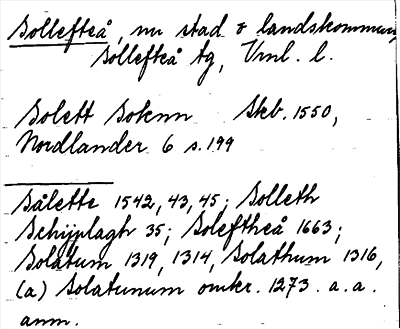 Sollefteå, nu stad o landskommun,
Sollefteå tg, Vrnl. l.
Solett Soknn Skb. 1550,
Nordlander 6 s. 199
Sålette 1542, 43, 45; Solleth
Schijplagh 35; Soleftheå 1663;
Solatum 1319, 1314, Solathum 1316,
(a) Solatunum omkr. 1273. a. a.
anm.